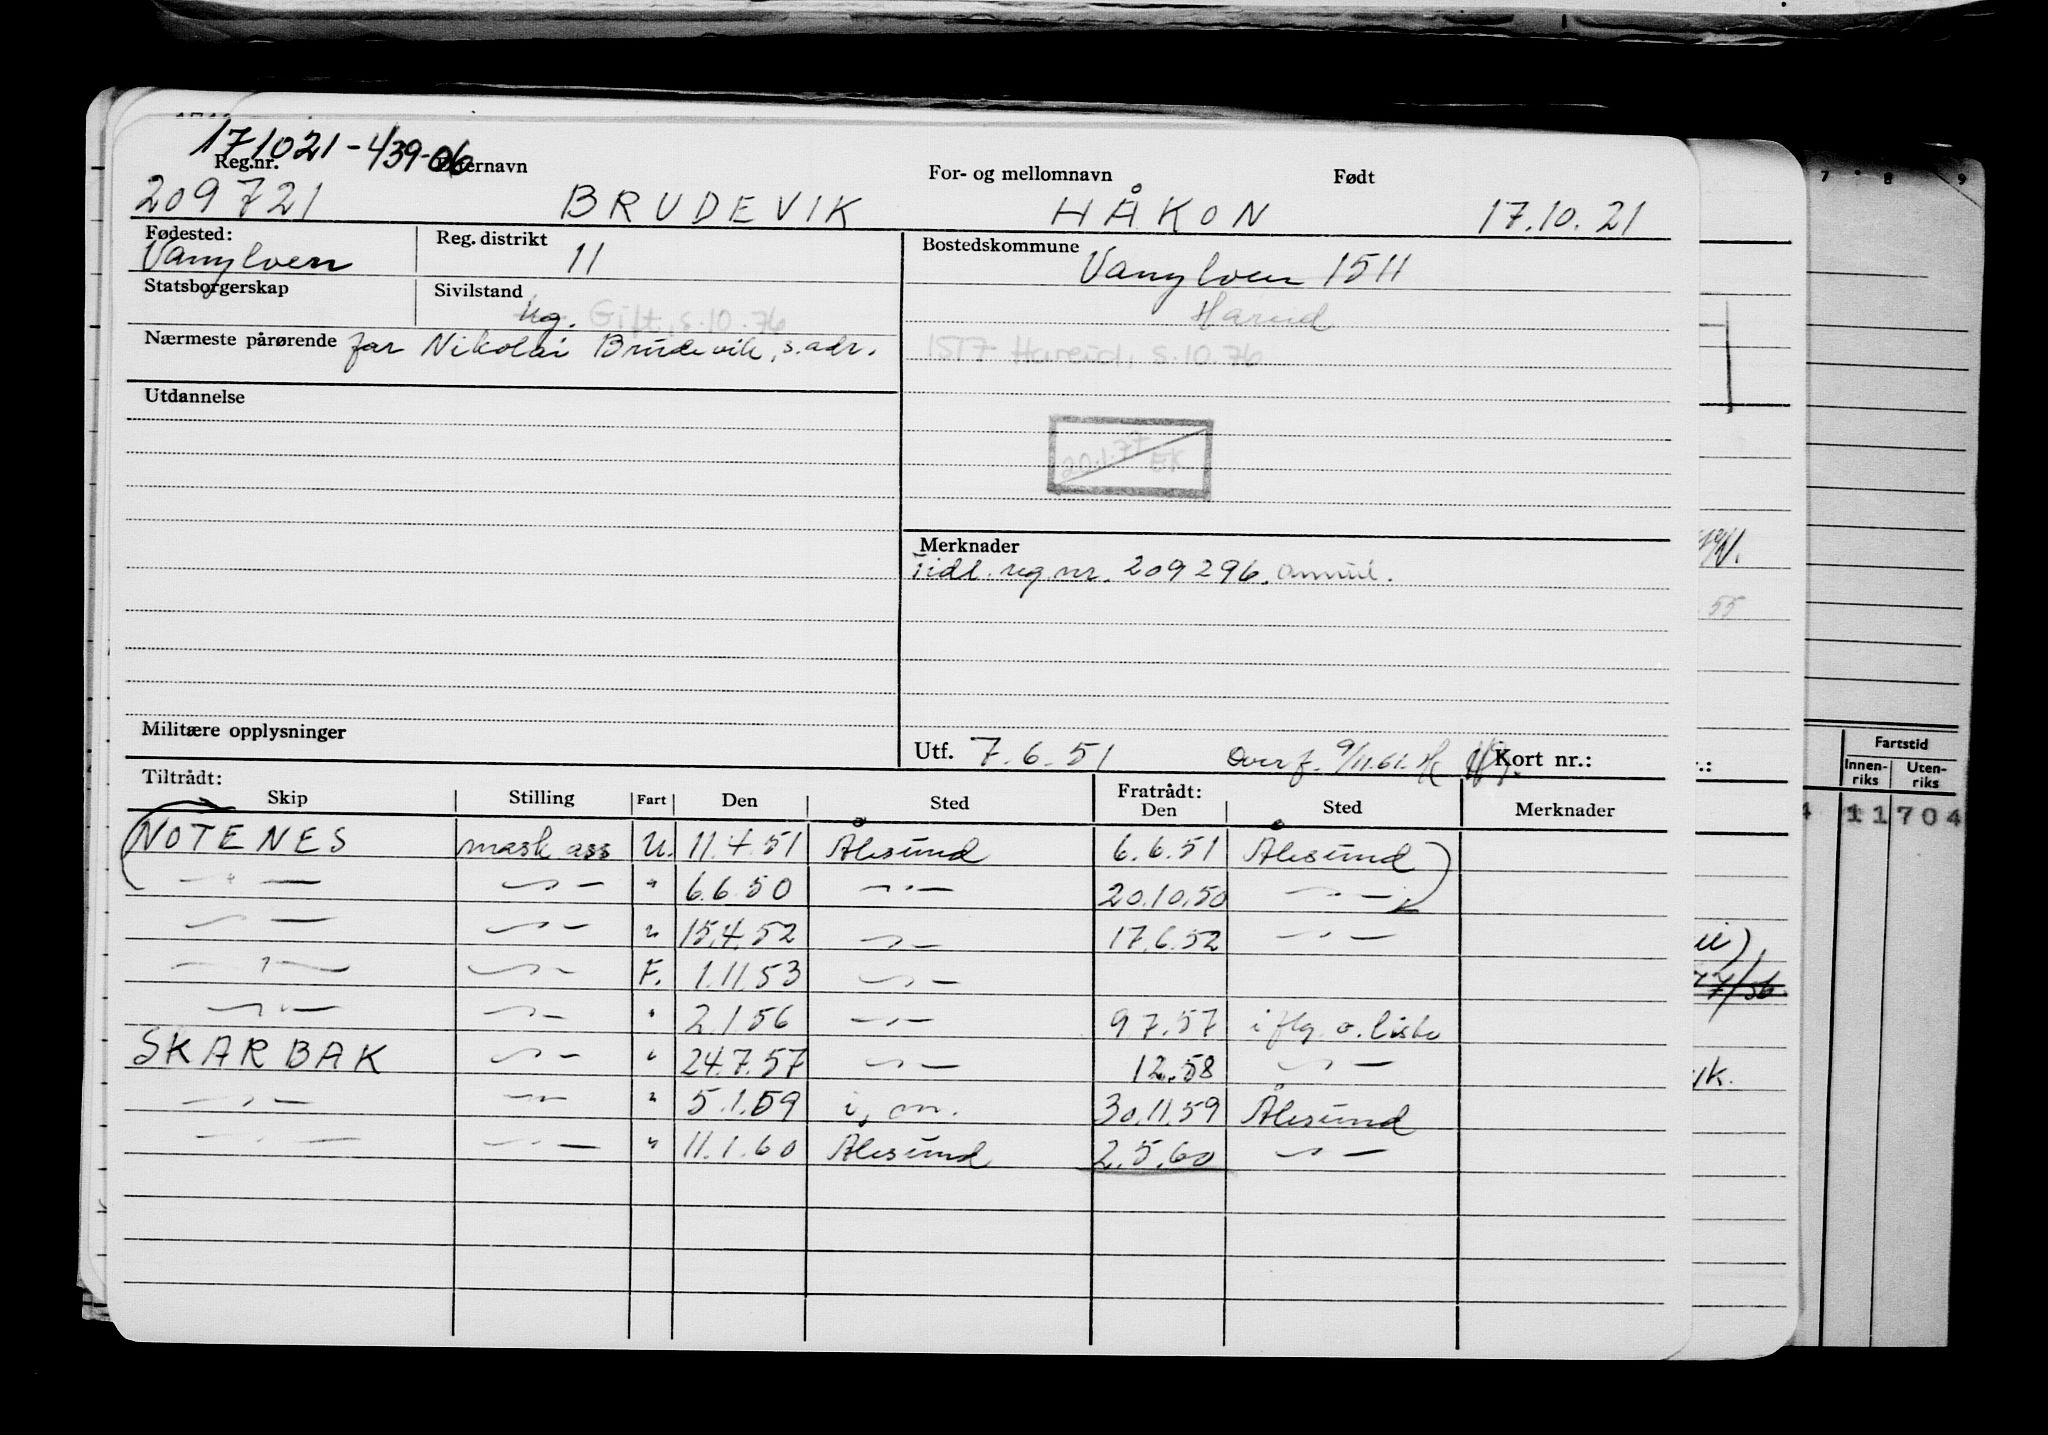 171021-439-06
Reg.nr. Etternavn For- og mellomnavn Født
209721 BRUDEVIK HÅKON 17.10.21
Fødested: Reg. distrikt Bostedskommune
Vanylven 11 Vanylven 1511
Statsborgerskap Sivilstand
ug. Gift, s.10.76 Hareid
Nærmeste pårørende far Nikolai Brudevik, s. adr. 1517 Hareid, s.10.76
Utdannelse
20.1.77 EK
Merknader
Tidl. reg nr. 209296. annul.
Militære opplysninger
Utf. 7.6.51 Overf. 9/11.61. Kort nr.:
Tiltrådt: Fratrådt:
Skip Stilling Fart Den Sted Den Sted Merknader
NOTENES mask ass U. 11.4.51 Ålesund 6.6.51 Ålesund
— " — — " — " 6.6.50 — " — 20.10.50 — " —
— " — — " — " 15.4.52 — " — 17.6.52 — " —
— " — — " — F. 1.11.53 — " —
— " — — " — " 2.1.56 — " — 9 7.57 i flg. o. liste
SKARBAK — " — " 24.7.57 — " — 12.58 — " —
— " — — " — " 5.1.59 i, on. 30.11.59 Ålesund
— " — — " — " 11.1.60 Ålesund 2.5.60 — " —
7 8 9
55
Fartstid
Innen-riks Uten-riks
11704